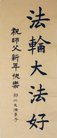 法輪大法好
祝師父新年快樂